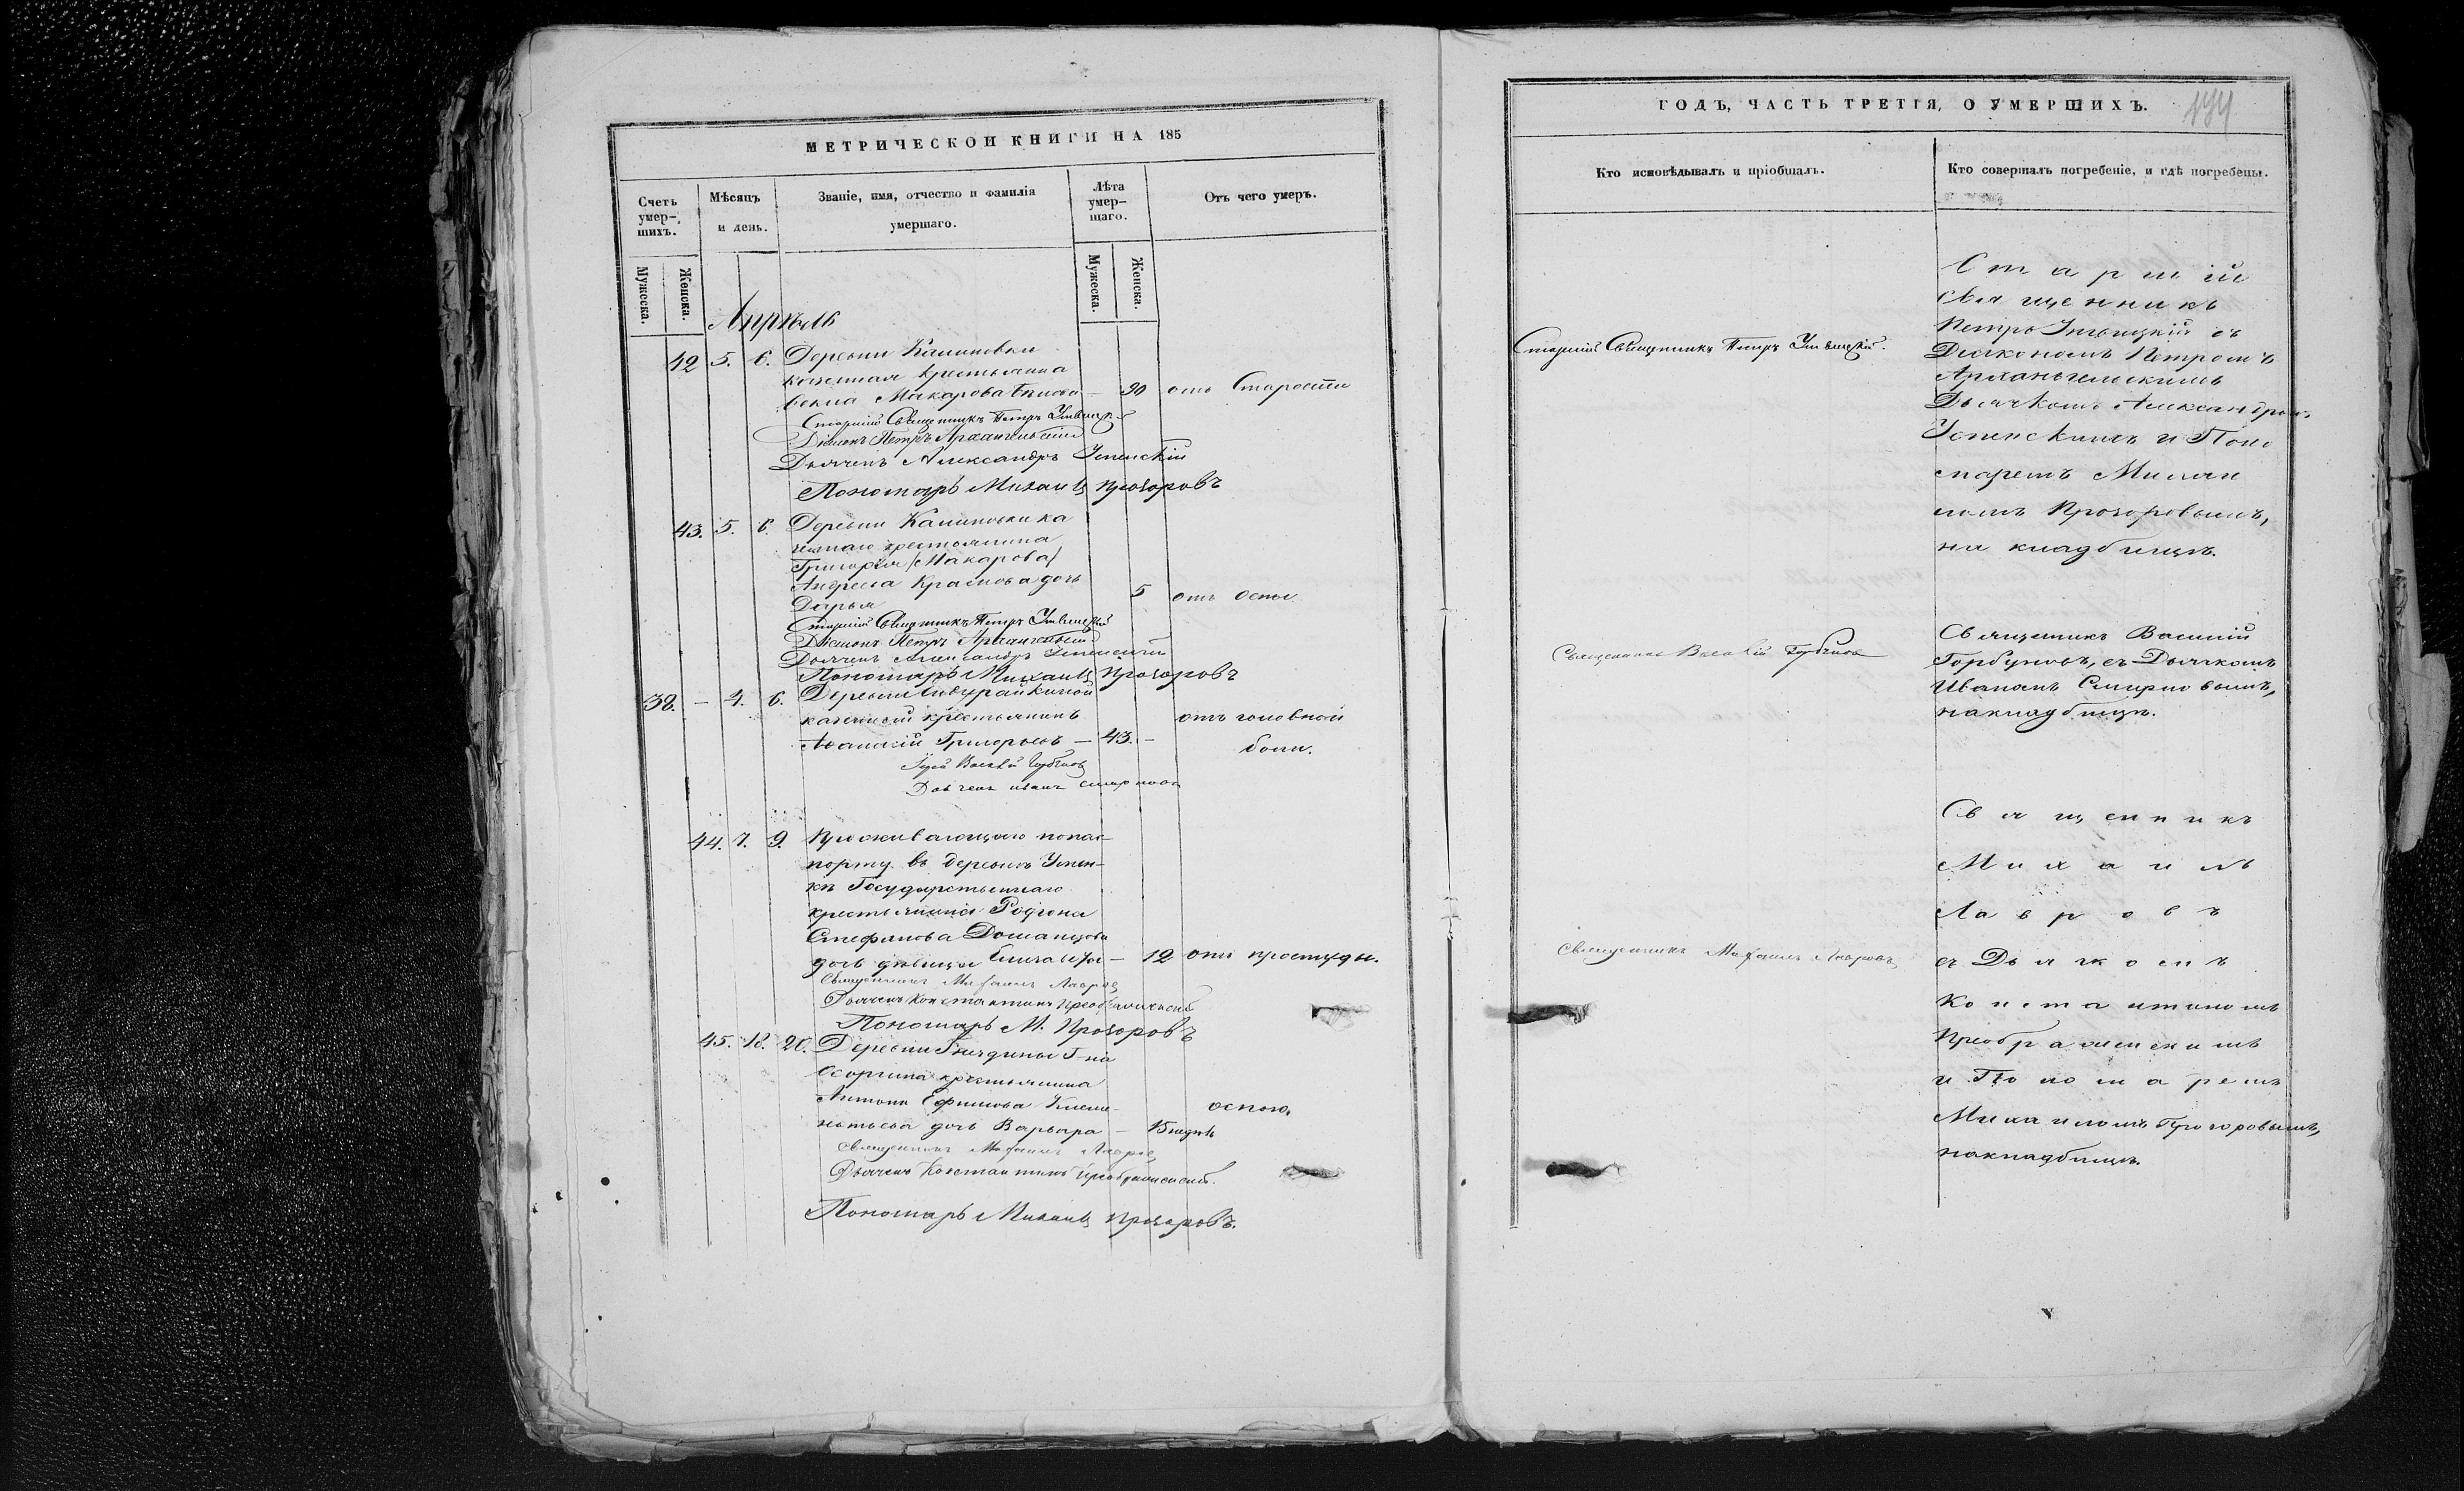 МЕТРИЧЕСКОЙ КНИГИ НА 185
Счетъ умер-шихъ.
Мѣсяцъ и день.
Званіе, имя, отчество и фамилія умершаго.
Лѣта умер-шаго.
Отъ чего умеръ.
Мужеска.
Женска.
Мужеска.
Женска.
Апрѣль
42 5. 6. Деревни Калиновки
казенная крестьянка
Макарова 90 отъ Старости
Старшій Священникъ Петръ
Діаконъ Петръ Архангельскій
Дьячекъ Александръ Успенскій
Пономарь Михаилъ Прозоровъ
43. 5. 6. Деревни Калиновки ка
зеннаго крестьянина
Григорія /Макарова/
Андреева Краснова дочь
Дарья 5 отъ оспы.
Старшій Священникъ Петръ
Діаконъ Петръ Архангельскій
Дьячекъ Александръ Успенскій
Пономарь Михаилъ Прозоровъ
38. - 4. 6. Деревни
казенный крестьянинъ отъ головной
Григорьевъ — 43. - боли.
Іерей Василій Горбуновъ
Дьячекъ Иванъ Смирновъ
44. 7. 9. Проживающаго попас-
порту въ деревнѣ Успен-
кѣ Государственнаго
крестьянина Родіона
Стефанова
дочь дѣвица Елизавета — 12 отъ простуды.
Священникъ Михаилъ Лавровъ
Дьячекъ Константинъ Преображенскій
Пономарь М. Прозоровъ
45. 18. 20. Деревни Гнездины Г-на
Осоргина крестьянина
Антона Ефимова Клеме- оспою.
нтьева дочь Варвара — 15 недѣль
Священникъ Михаилъ Лавровъ
Дьячекъ Константинъ Преображенскій.
Пономарь Михаилъ Прозоровъ.
ГОДЪ, ЧАСТЬ ТРЕТІЯ, О УМЕРШИХЪ.
Кто исповѣдывалъ и пріобщалъ.
Кто совершалъ погребеніе, и гдѣ погребены.
Старшій
священникъ
Петръ съ
Старшій Священникъ Петръ
Діакономъ Петромъ
Архангельскимъ
Дьячкомъ Александромъ
Успенскимъ и Поно
маремъ Михаи
ломъ Прозоровымъ,
на кладбищѣ.
Священникъ Василій Горбуновъ
Священникъ Василій
Горбуновъ, съ Дьячкомъ
Иваномъ Смирновымъ,
на кладбищѣ.
Священникъ
Михаилъ
Лавровъ
Священникъ Михаилъ Лавровъ
съ Дьячкомъ
Константиномъ
Преображенскимъ
и Пономаремъ
Михаиломъ Прозоровымъ,
на кладбищѣ.